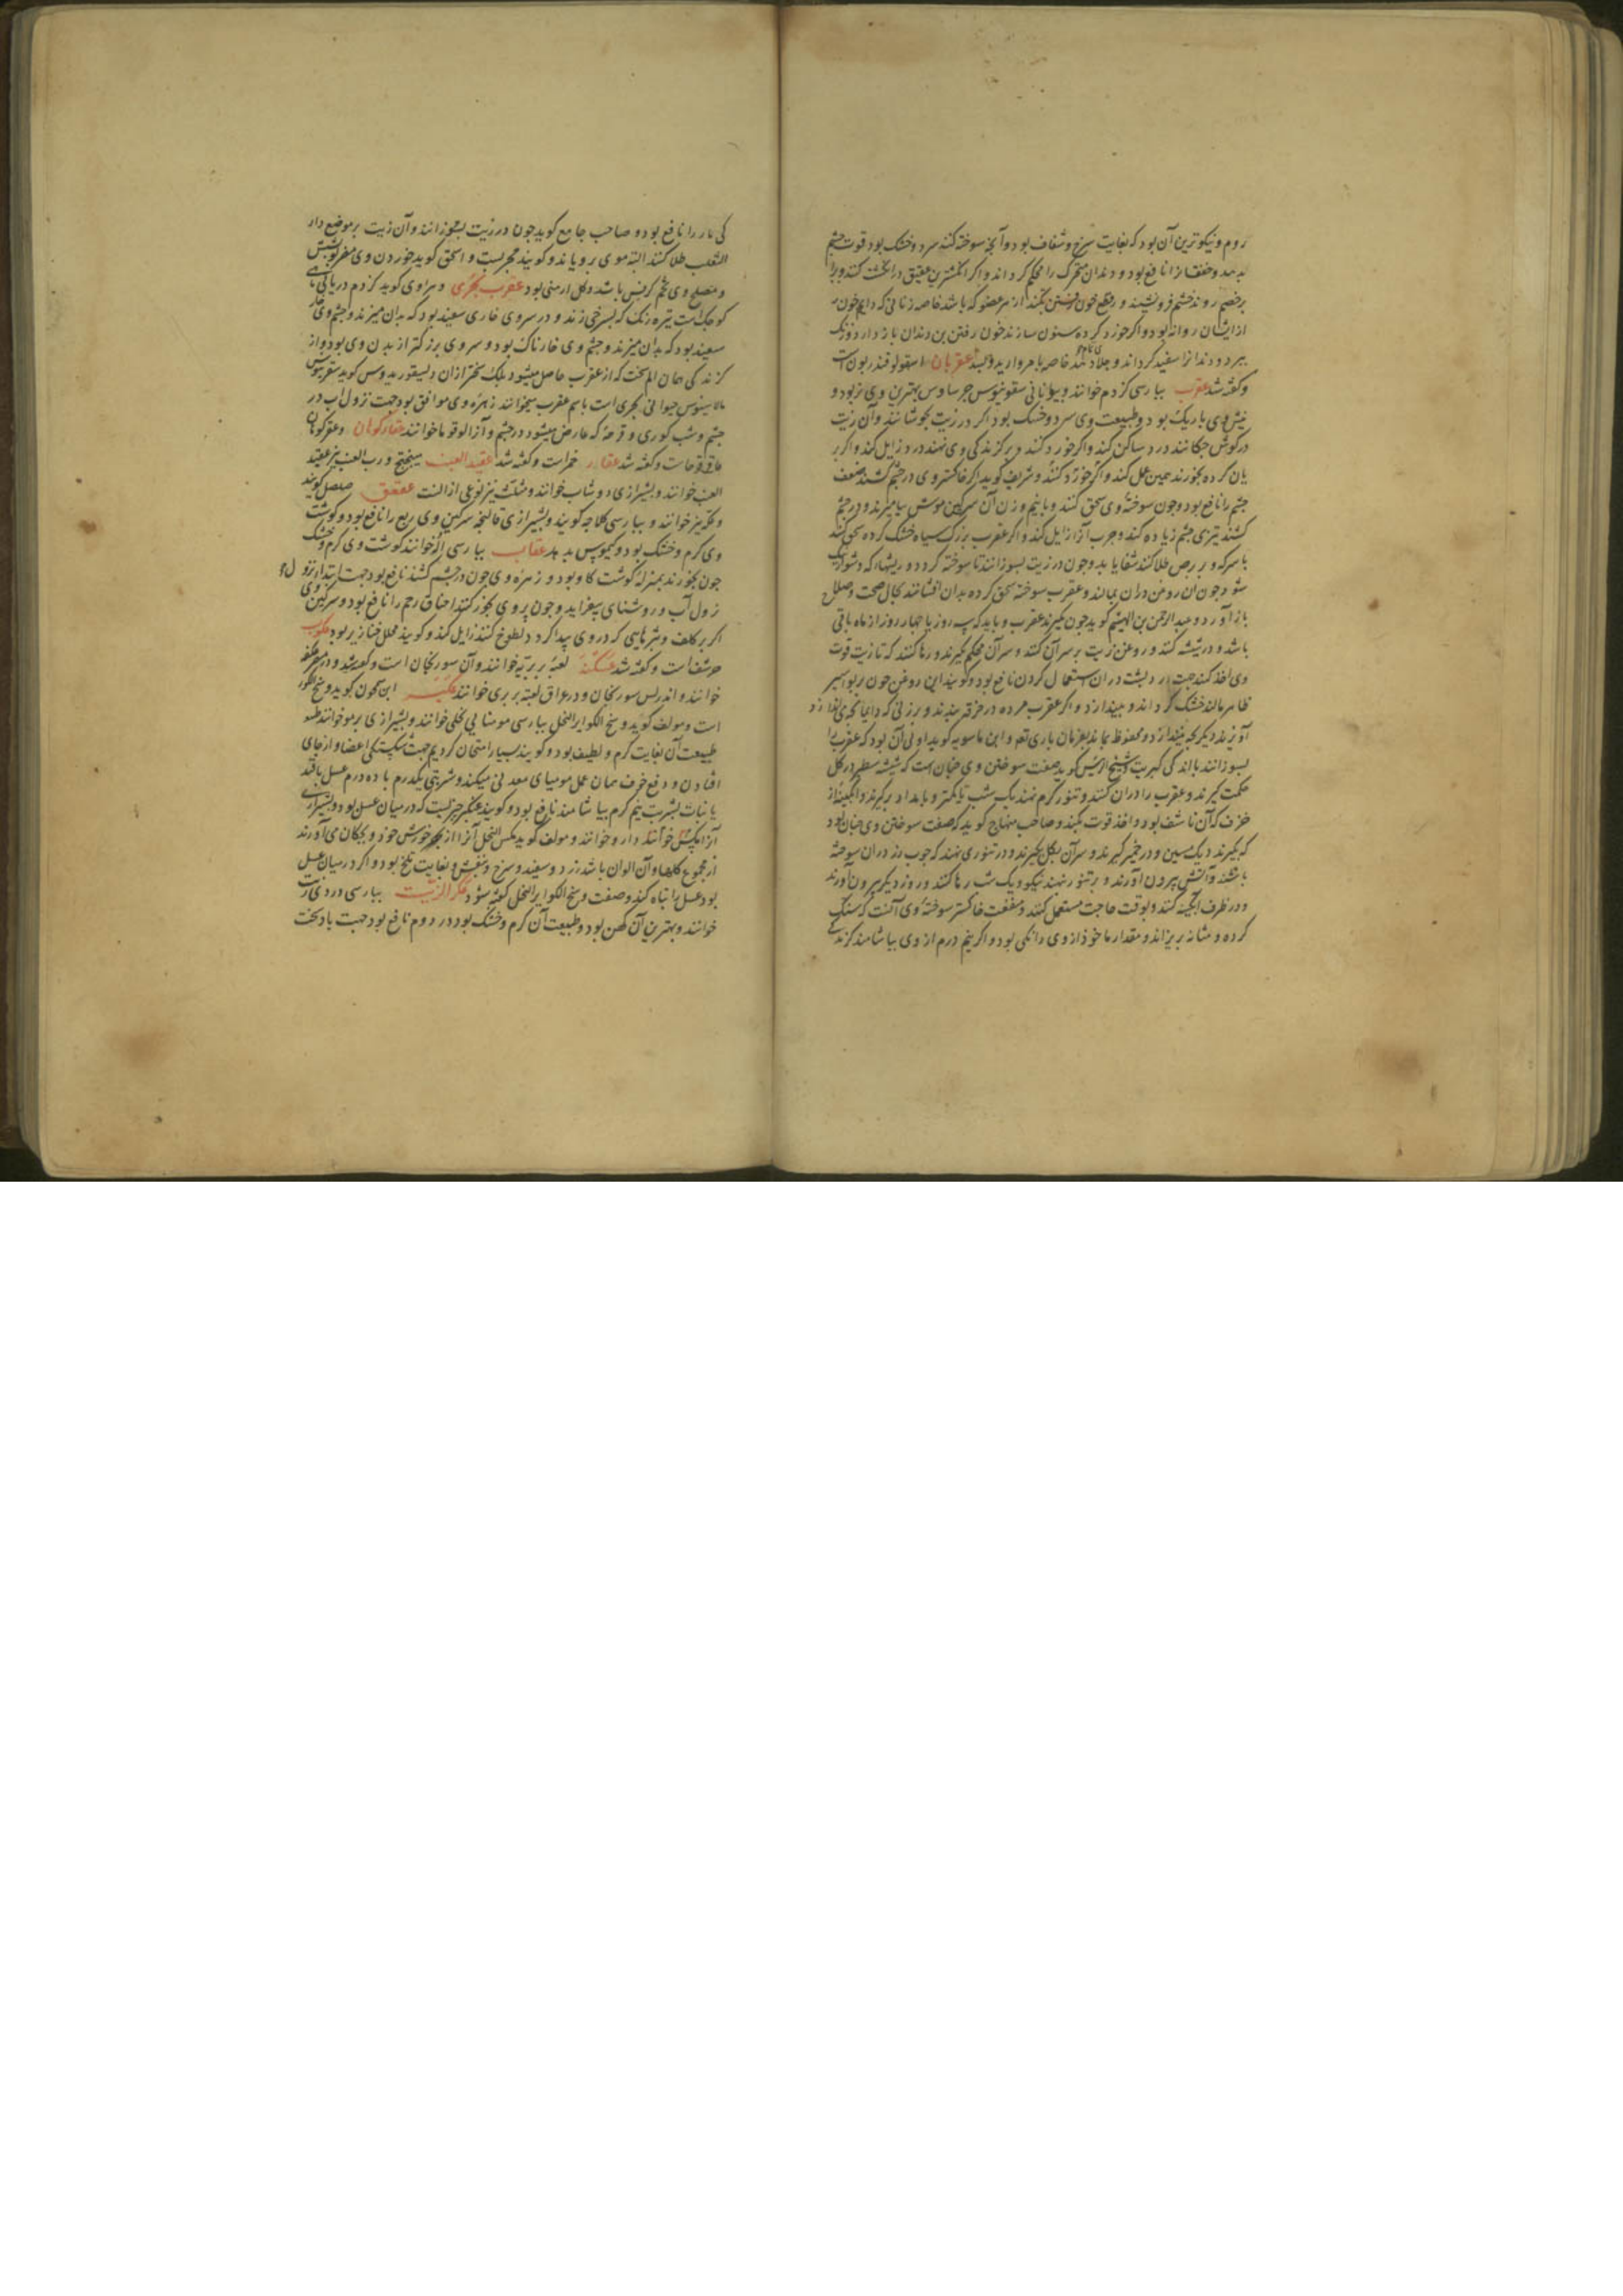 روم و نیکوترین آن بود که بغایت سرخ و شفاف بود و آنچه سوخته کند سرد و خشک بود قوت چشم
بدهد و خفقانرا نافع بود و دندان متحرک را محکم گرداند و اگر انگشترین عقیق در انگشت کنند و برابر
خصم روند خشم فرو نشیند و قطع خون رفتن بکند از هر عضو که باشد خاصه زنانی که دایم خون
از ایشان روانه بود و اگر خورد کرده سنون سازند خون رفتن بن دندان باز دارد و زنک
ببرد و دندانرا سفید گرداند و جلا دهد خاصه با مروارید عقربان اسقولوقندریون است
و گفته شد عقرب بپارسی کژدم خوانند و بیونانی بهترین وی نر بود و
نیش وی باریک بود و طبیعت وی سرد و خشک بود اگر در زیت بجوشانند و آن زیت
در گوش چکانند درد ساکن کند و اگر خورد کنند و بر گزندگی وی نهند درد زایل کند و اگر بر
یان کرده بخورند همین عمل کند و شریف گوید اگر خاکستر وی در چشم کشند ضعف
چشم را نافع بود و چون سوخته وی سحق کنند و با نیم وزن آن سرگین موش بیامیزند و در چشم
کشند تیزی چشم زیاده کند و جرب آنرا زایل کند و اگر عقرب بزرگ سیاه خشک کرده سحق کنند
با سرکه و بر برص طلا کنند شفا یابد و چون در زیت بسوزانند تا سوخته گردد و ریشها که دشوار نیک
شود چون آن روغن در آن بمالند و عقرب سوخته سحق کرده بدان افشانند بحال صحت و صلاح
باز آورد و عبدالرحمن بن الهیثم گوید چون بگیرند عقرب و باید که سه روز یا چهار روز از ماه باقی
باشد و در شیشه کنند و روغن زیت بر سر آن کنند و سر آن محکم گیرند و رها کنند که تا زیت قوت
وی اخذ کند جهت درد پشت در آن استعمال کردن نافع بود و گویند این روغن چون بر بواسیر
ظاهر مالند خشک گرداند و بیندازد و اگر عقرب مرده در خرقه بندند و بر زنی که دایما بچه می اندازد
آویزند دیگر بچه نیندازد و محفوظ بماند بفرمان باری تعالی و ابن ماسویه گوید اولی آن بود که عقرب را
بسوزانند با اندکی کبریت شیخ الرئیس گوید صفت سوختن وی چنان است که شیشه سطبر در گل
حکمت گیرند و عقرب را در آن کنند و تنور گرم نهند یک شب یا کمتر و بامداد برگیرند و
خزف که آن ناشف بود و اخذ قوت بکند و صاحب منهاج گوید که صفت سوختن وی چنان بود
که بگیرند دیک مسین و در خمیر گیرند و سر آن بگل بگیرند و در تنوری نهند که چوب رز در آن سوخته
باشند و آتش بیرون آورند و بر تنور نهند نیکو و یک شب رها کنند و روز دیگر بیرون آورند
و در ظرف آبگینه کنند و بوقت حاجت مستعمل کنند و منفعت خاکستر سوخته وی آنست که سنگ
گرده و مثانه بریزاند و مقدار ماخوذ از وی دانگی بود و اگر نیم درم از وی بیاشامند گزند
گی مار را نافع بود و صاحب جامع گوید چون در زیت بسوزانند و آن زیت بر موضع داء
الثعلب طلا کنند البته موی برویاند و گویند مجربست و اسحق گوید خوردن وی مضر بشش
و مصلح وی تخم کرفس باشد و گل ارمنی بود عقرب بحری گوید کژدم دریایی ماهی
کوچک است تیره رنگ که بسرخی زند و در سر وی خاری سفید بود که بدان میزند و چشم وی
سفید بود که بدان میزند و چشم وی خارناک بود و سر وی بزرگتر از بدن وی بود و از
گزندگی همان الم سخت که از عقرب حاصل میشود بلک سختر از آن و دیسقوریدوس گوید
حیوانی بحری است باسم عقرب میخوانند زهره وی موافق بود جهت نزول آب در
چشم و شب کوری و قرحه که عارض میشود در چشم و آنرا لوقوما خوانند عقارکوهان و عقرکوهان
عاقرقرحاست و گفته شد عقار خمر است و گفته شد عقید العنب میبختج و رب العنب نیز عقید
العنب خوانند و بشیرازی دوشاب خوانند و مثلث نیز نوعی از آنست عقعق صلصل گویند
و عکه نیز خوانند و بپارسی کلاجه گویند و بشیرازی قالنجه سرگین وی ربع را نافع بود و گوشت
وی گرم و خشک بود و کیموس بد بد عقاب بپارسی اله خوانند گوشت وی گرم و خشک
چون بخورند بمنزله گوشت گاو بود و زهره وی چون در چشم کشند نافع بود جهت ابتداء نزول آب
نزول آب و روشنایی بیفزاید و چون پر وی بخور کنند اختناق رحم را نافع بود و سرگین وی
اگر بر کلف و بثرهایی که در روی پیدا گردد لطوخ کنند زایل کند و گویند محلل خنازیر بود عکوب
حرشف است و گفته شد عکنه لعبه بربریه خوانند و آن سورنجان است و گفته شد و در مصر عکنه
خوانند و اندلس سورنجان و در عراق لعبه بربری خوانند عکبر ابن سمجون گوید وسخ الکور
است و مولف گوید وسخ الکوایر النحل بپارسی مومیائی نحلی خوانند و بشیرازی برمو خوانند
طبیعت آن بغایت گرم و لطیف بود و گویند بسیار امتحان کردیم جهت شکستگی اعضا و از جای
افتادن و دفع خرف همان عمل مومیای معدنی میکند و شربتی یکدرم با ده درم عسل یا قند
یا نبات بشربت نیم گرم بیاشامند نافع بود و گویند عکبر چیزیست که در میان عسل بود و بشیرازی
آنرا خوانند دارو خوانند و مولف گوید مکس النحل آنرا از بهر خورش خود و بچگان می آورند
از مجموع گلها و آن الوان باشد زرد و سفید و سرخ و بنفش و بغایت تلخ بود و اگر در میان عسل
بود عسل را تباه کند و صفت وسخ الکوایر النحل گفته شود عکر الزیت بپارسی دردی زیت
خوانند و بهترین آن کهن بود و طبیعت آن گرم و خشک بود در دوم نافع بود جهت